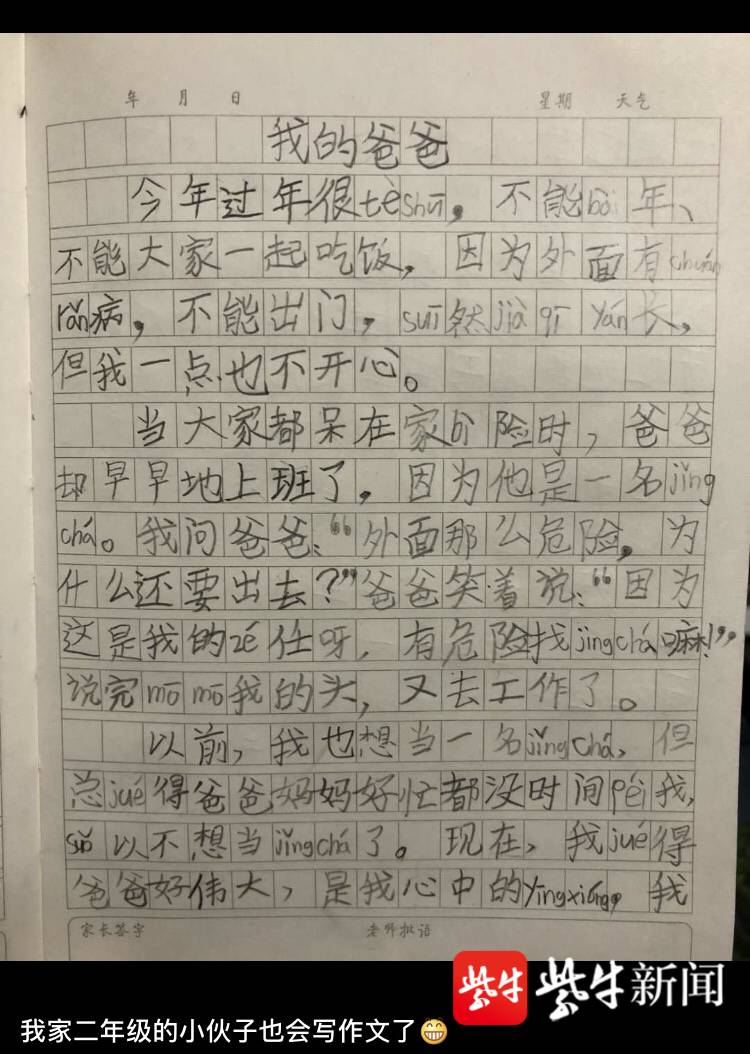 年 月 日 星期 天气
我的爸爸
今年过年很tèshū，不能bài年、
不能大家一起吃饭，因为外面有chuán
rǎn病，不能出门，suī然jià qī yán长，
但我一点也不开心。
当大家都呆在家bì险时，爸爸
却早早地上班了，因为他是一名jǐng
chá。我问爸爸：“外面那么危险，为
什么还要出去？”爸爸笑着说：“因为
这是我的zé任呀，有危险找jǐngchá嘛！”
说完mō mō我的头，又去工作了。
以前，我也想当一名jǐngchá，但
总jué得爸爸妈妈好忙都没时间péi我，
suǒ以不想当jǐngchá了。现在，我jué得
爸爸好伟大，是我心中的yīngxióng，我
家长签字 老师批语
紫牛 紫牛新闻
我家二年级的小伙子也会写作文了😁